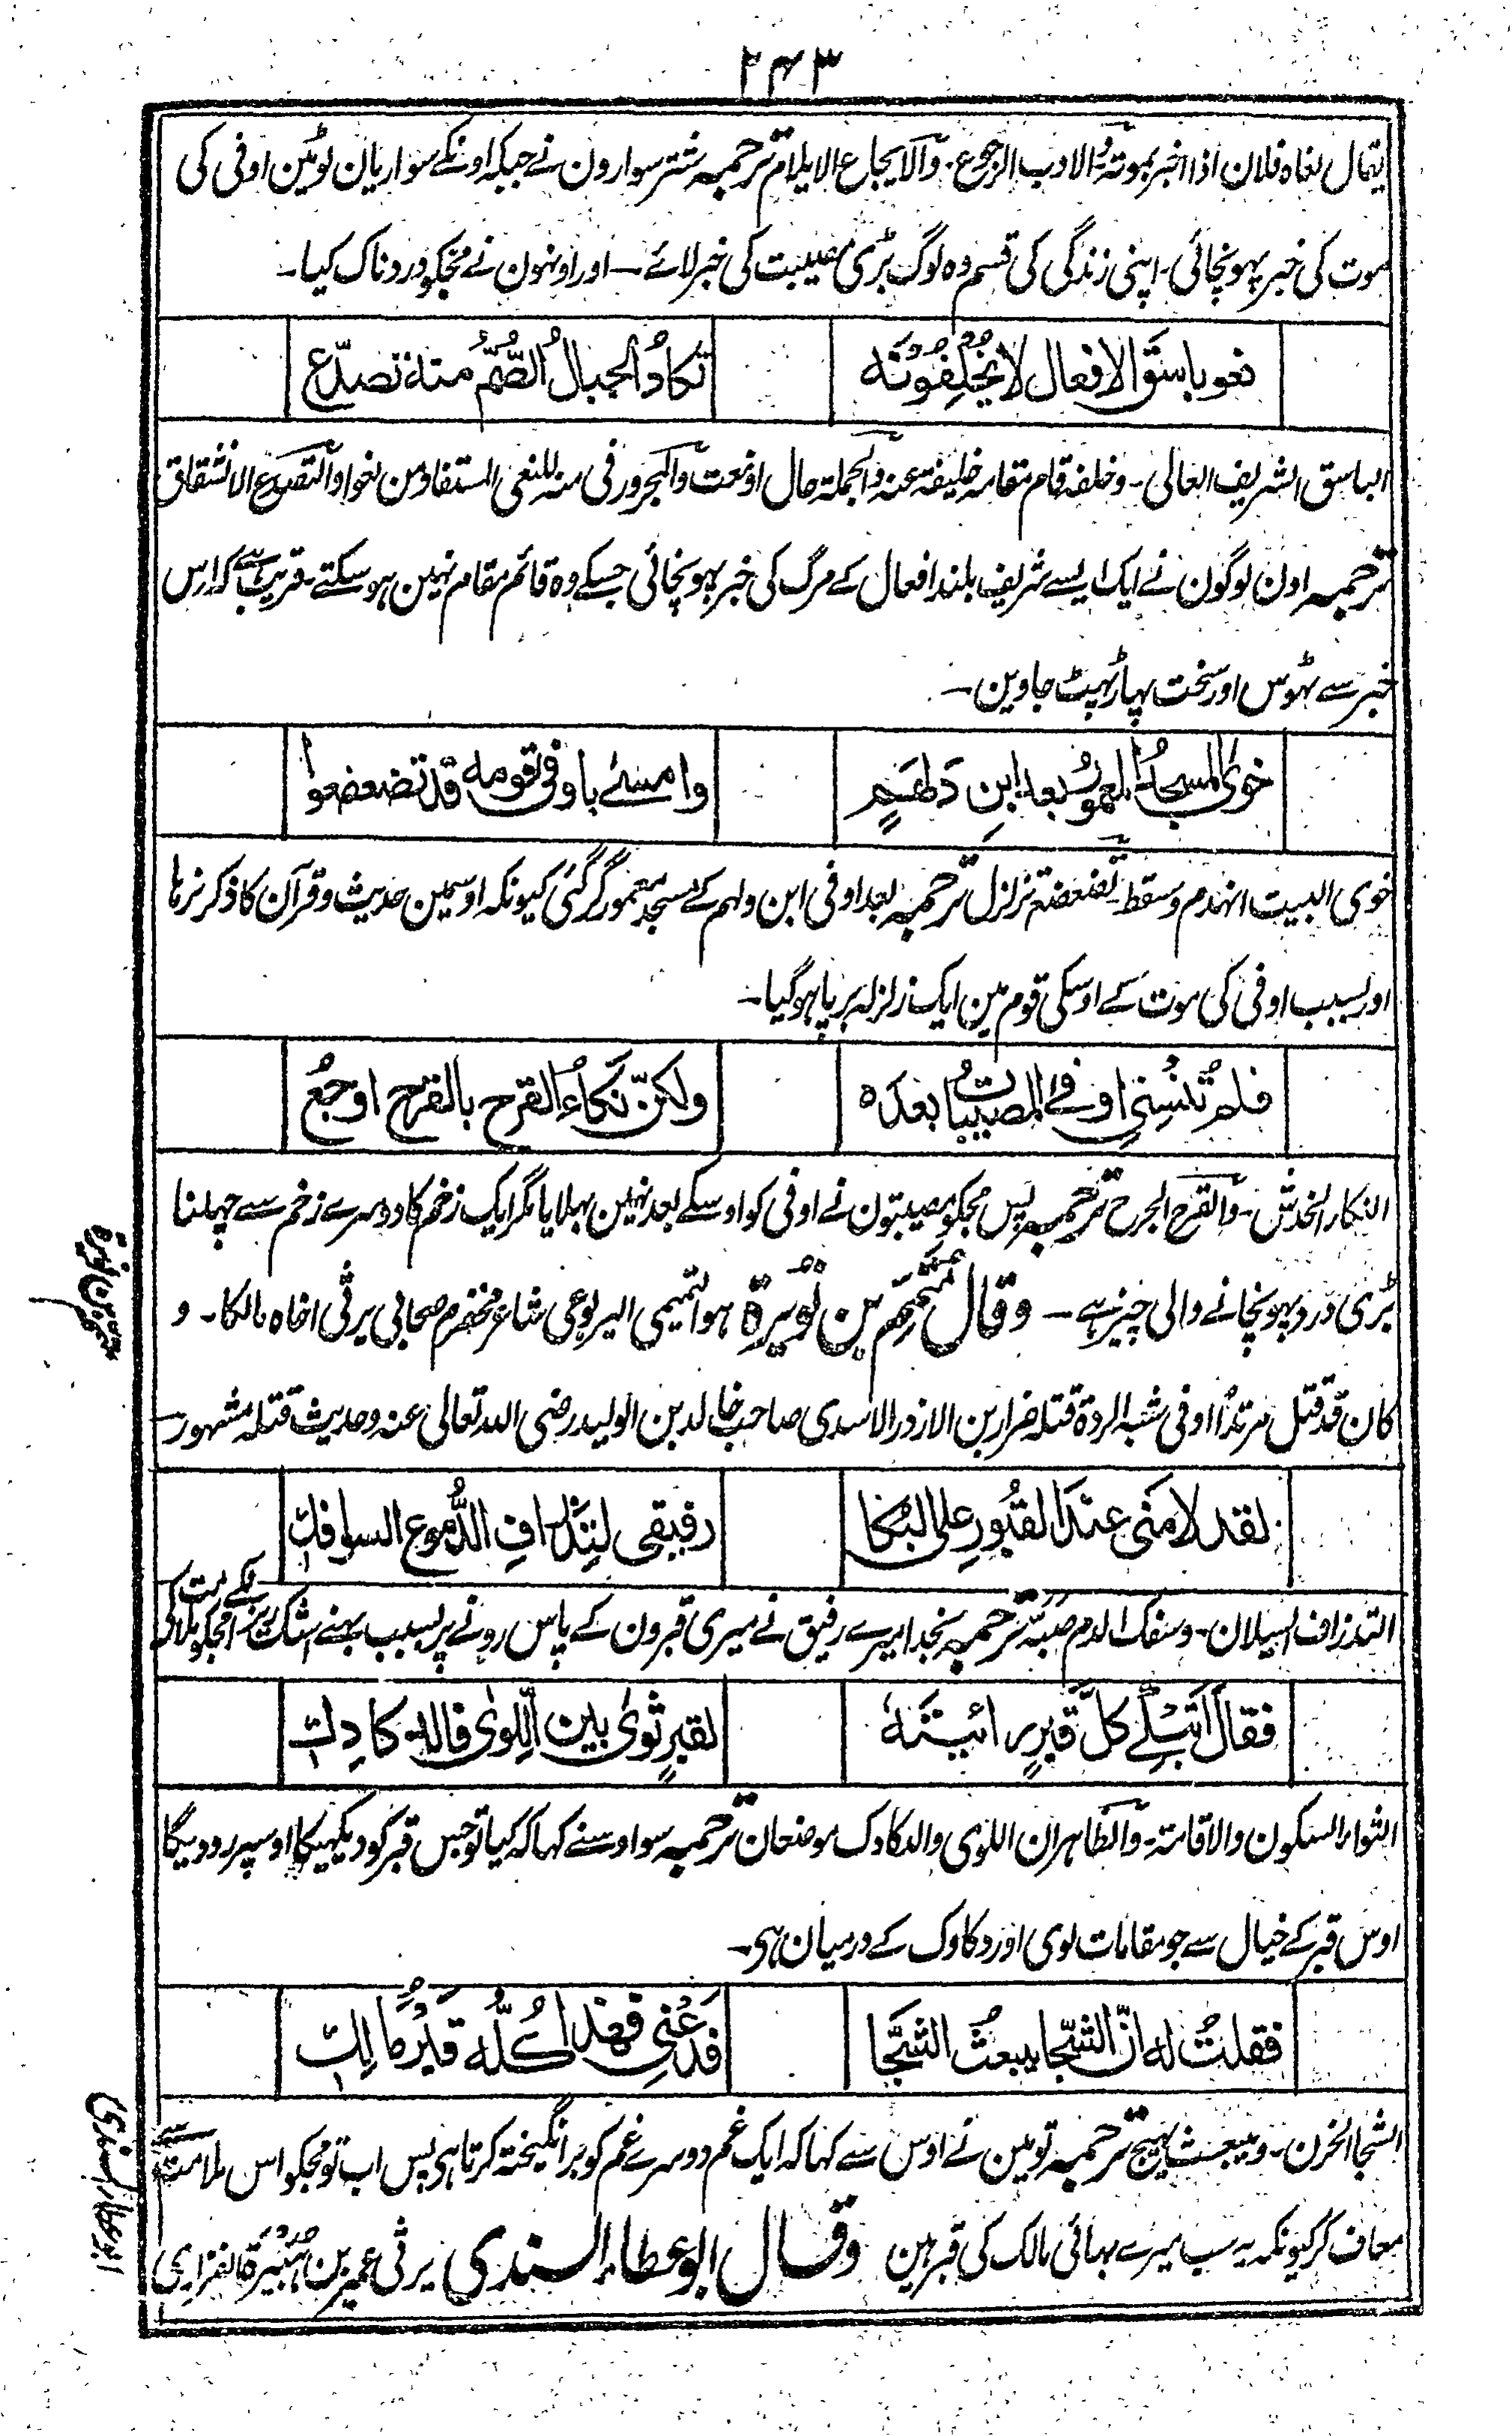 ۲۴۳
یقال نعاہ فلان اذا اخبر بموتہ والادب الرجوع۔ والایجاع الایلام ترجمہ شتر سوارون نے جبکہ اونکے سواریان لوٹین اوفی کی
موت کی خبر پہونچائی۔ اپنی زندگی کی قسم وہ لوگ بڑی مصیبت کی خبر لائے۔ اور اونہون نے مجکو دردناک کیا۔
نعو باسق الافعال لا یخلفونہ تکاد الجبال الصم منہ تصدع
الباسق الشریف العالی۔ وخلفہ قام مقامہ خلیفۃ عنہ والجملۃ حال او نعت والمجرور فی منہ للنعی المستفاد من نعوا والتصدع الانشقاق
ترجمہ اون لوگون نے ایک ایسے شریف بلند افعال کے مرگ کی خبر پہونچائی جسکے وہ قائم مقام نہین ہو سکتے۔ قریب ہے کہ اس
خبر سے ٹہوس اور سخت پہاڑ پہٹ جاوین۔
خوی المسجد المعمور بعد ابن دلھم وامسے باوفی قومہ قد تضعضعوا
خوی البیت انہدم وسقط۔ تضعضع تزلزل ترجمہ بعد اوفی ابن دلہم کے مسجد معمور گر گئی کیونکہ اوسمین حدیث و قرآن کا ذکر نرہا
اور بسبب اوفی کی موت کے اوسکی قوم مین ایک زلزلہ برپا ہو گیا۔
فلم تنسنی اوفے المصیبات بعدہ ولکن نکاء القرح بالقرح اوجع
النکاء الخدش۔ والقرح الجرح ترجمہ پس مجکو مصیبتون نے اوفی کو اوسکے بعد نہین بہلایا مگر ایک زخم کا دوسرے زخم سے چہلنا
بڑی درد پہونچانے والی چیز ہے۔ وقال متمم بن نویرۃ ہو التمیمی الیربوعی شاعر مخضرم صحابی یرثی اخاہ مالکا۔ و
متمم بن نویرۃ
کان قد قتل مرتدا او فی شبہ الردۃ قتلہ ضرار بن الازدر الاسدی صاحب خالد بن الولید رضی اللہ تعالی عنہ وحدیث قتلہ مشہور۔
لقد لامنی عند القبور علی البکا رفیقی لتذراف الدموع السوافک
التذراف السیلان۔ وسفک الدم صبہ ترجمہ بخدا میرے رفیق نے میری قبرون کے پاس رونے پر بسبب بہنے اشک ریزان کے مجکو ملامت کی
فقال اتبکے کل قبر رائیتہ لقبر ثوی بین اللوی فالدکادک
الثواء السکون والاقامۃ۔ والظاہر ان اللوی والدکادک موضعان ترجمہ سو اوسنے کہا کہ کیا تو جس قبر کو دیکہیگا اوسپر رودیگا
اوس قبر کے خیال سے جو مقامات لوی اور دکادک کے درمیان ہی۔
فقلت لہ ان الشجا یبعث الشجا فدعنی فھذا کلہ قبر مالک
الشجا الحزن۔ ویبعث یہیج ترجمہ تو مین نے اوس سے کہا کہ ایک غم دوسرے غم کو برانگیختہ کرتا ہی پس اب تو مجکو اس ملامت سے
معاف کر کیونکہ یہ سب میرے بہائی مالک کی قبر ہین وقال ابو عطاء السندی یرثی عمر بن ہبیرۃ الفزاری
ابو عطاء السندی